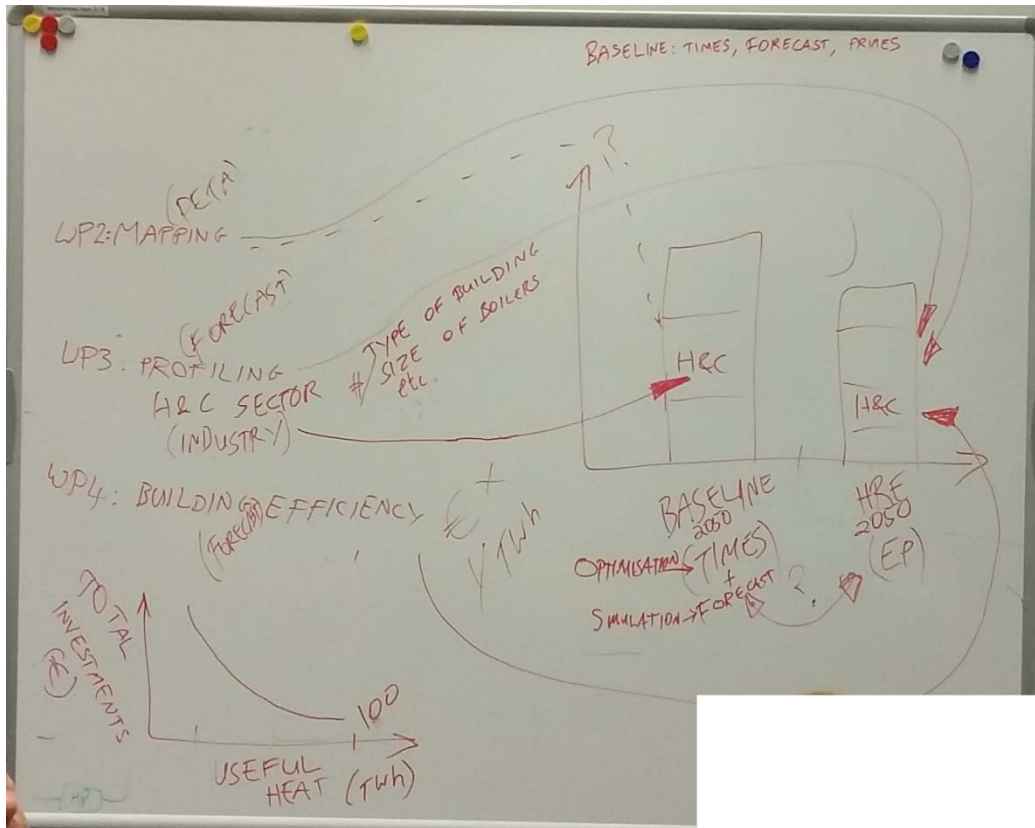 BASELINE: TIMES, FORECAST, PRIMES
?
(PETA)
WP2: MAPPING
(FORECAST)
WP3: PROFILING
H&C SECTOR
(INDUSTRY)
# TYPE OF BUILDING
SIZE OF BOILERS
etc.
H&C
H&C
WP4: BUILDING EFFICIENCY
(FORECAST)
€ +
/TWh
BASELINE
2050
OPTIMISATION → (TIMES)
+
SIMULATION → FORECAST
?
HRE
2050
(EP)
TOTAL
INVESTMENTS
(€)
100
USEFUL
HEAT (TWh)
(HP)